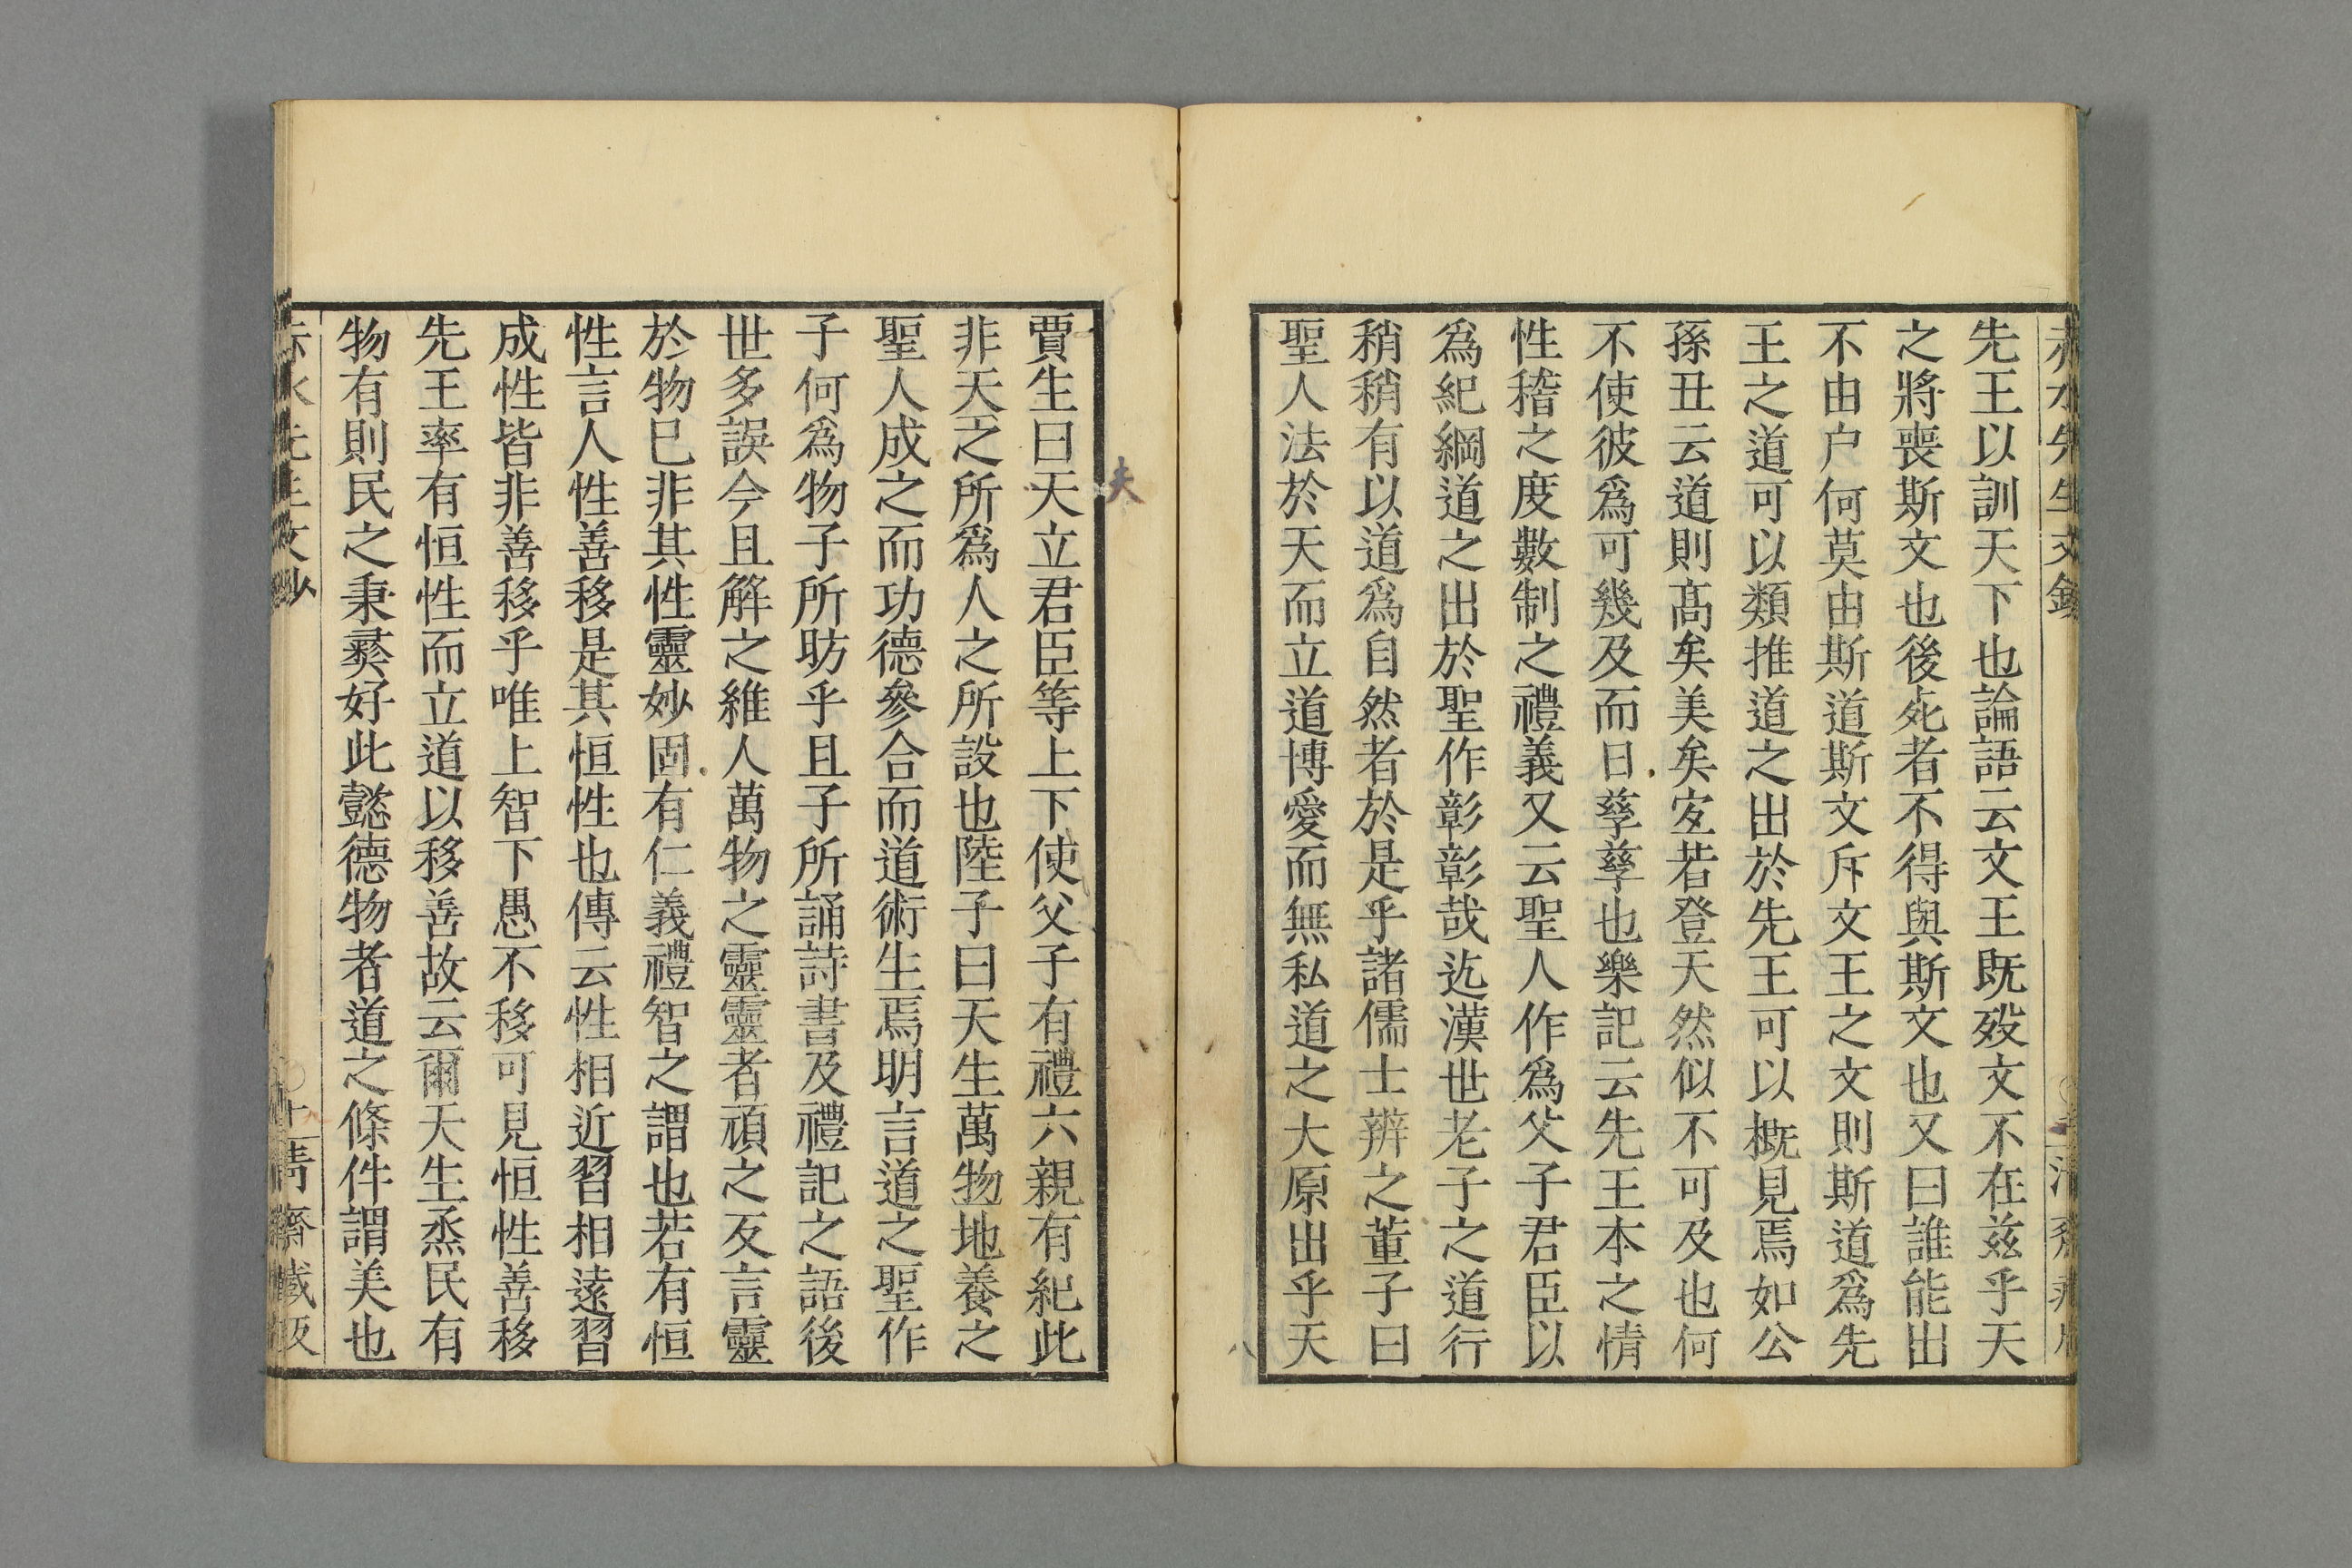 先王以訓天下也論語云文王既歿文不在兹乎天
之將喪斯文也後死者不得與斯文也又曰誰能出
不由户何莫由斯道斯文斥文王之文則斯道爲先
王之道可以類推道之出於先王可以概見焉如公
孫丑云道則髙矣美矣冝若登天然似不可及也何
不使彼爲可幾及而日孳孳也樂記云先王本之情
性稽之度數制之禮義又云聖人作爲父子君臣以
爲紀綱道之出於聖作彰彰哉迄漢世老子之道行
稍稍有以道爲自然者於是乎諸儒士辨之董子曰
聖人法於天而立道博愛而無私道之大原出乎天
賈生曰天立君臣等上下使父子有禮六親有紀此
夫
非天之所爲人之所設也陸子曰天生萬物地養之
聖人成之而功德參合而道術生焉明言道之聖作
子何爲物子所昉乎且子所誦詩書及禮記之語後
世多誤今且解之維人萬物之靈靈者頑之反言靈
於物已非其性靈妙固有仁義禮智之謂也若有恒
性言人性善移是其恒性也傳云性相近習相遠習
成性皆非善移乎唯上智下愚不移可見恒性善移
先王率有恒性而立道以移善故云爾天生烝民有
物有則民之秉彛好此懿德物者道之條件謂美也